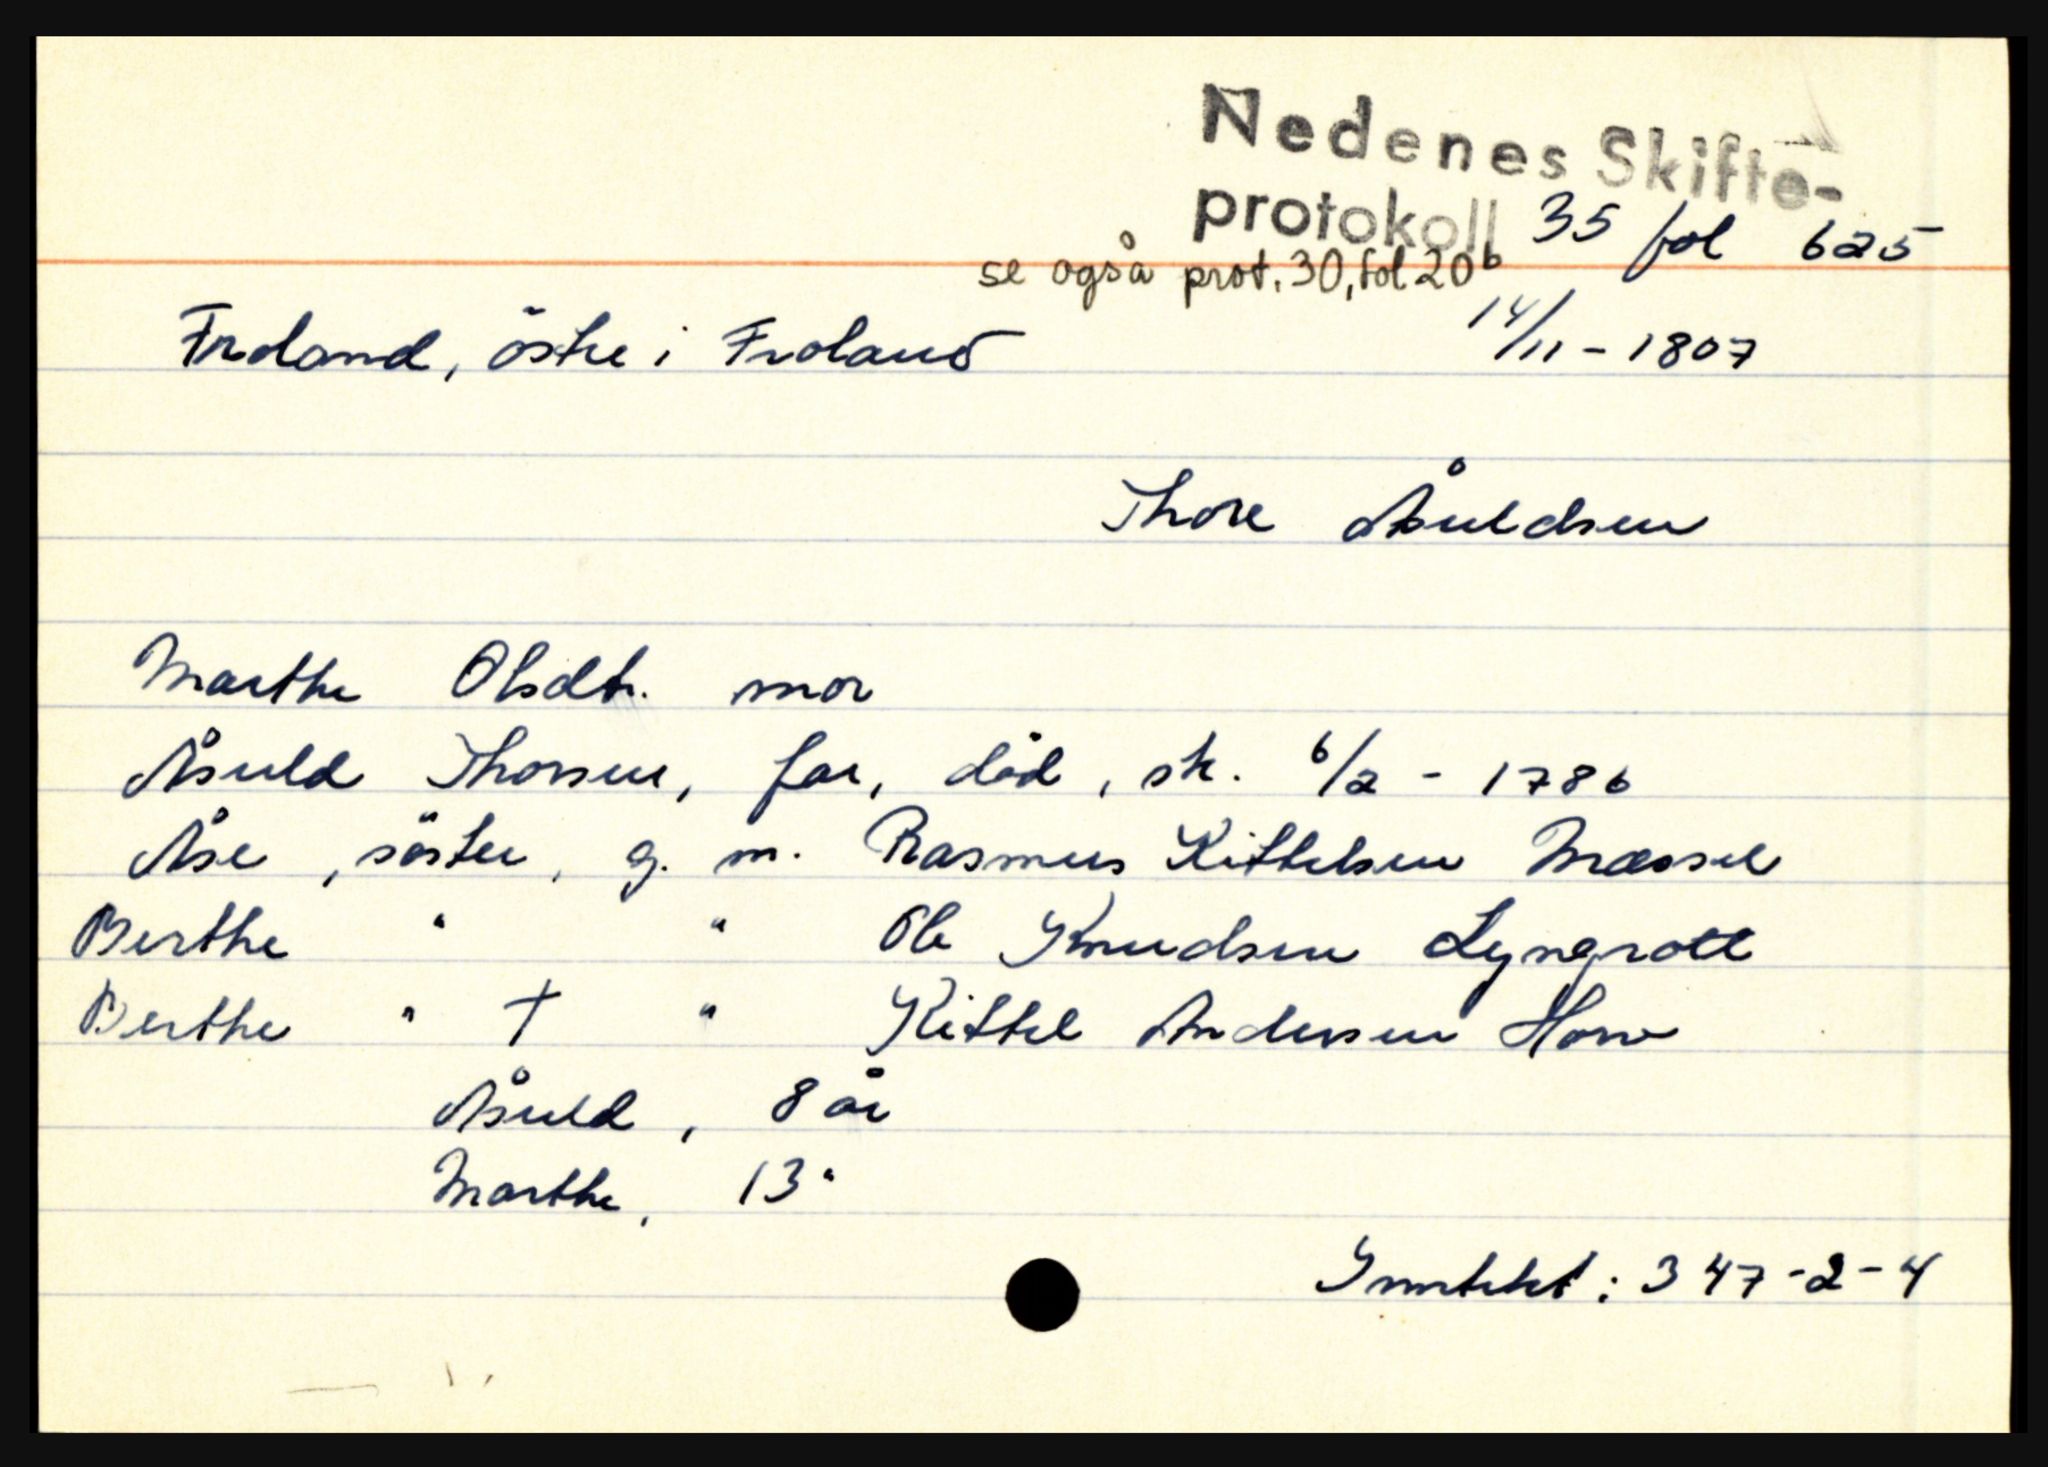 Nedenes Skifte-
protokoll 35 fol 625
se også prot. 30, fol 20b
Froland, östre i Froland
14/11 - 1807
Thore Åsuldsen
Marthe Olsdtr. mor
Åsuld Thorsen, far, död, sk. 6/2 - 1786
Åse, söster, g. m. Rasmus Kittelsen Messel
Berthe " " Ole Knudsen Lyngrott
Berthe " † " Kittel Andersen Hove
Åsuld, 8 år
Marthe, 13 "
Inntekt: 347-2-4